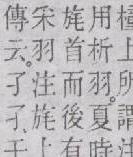 橦上所謂注
用析羽。夏時
旄首而後有
采羽注旄上
傳云。孑孑干